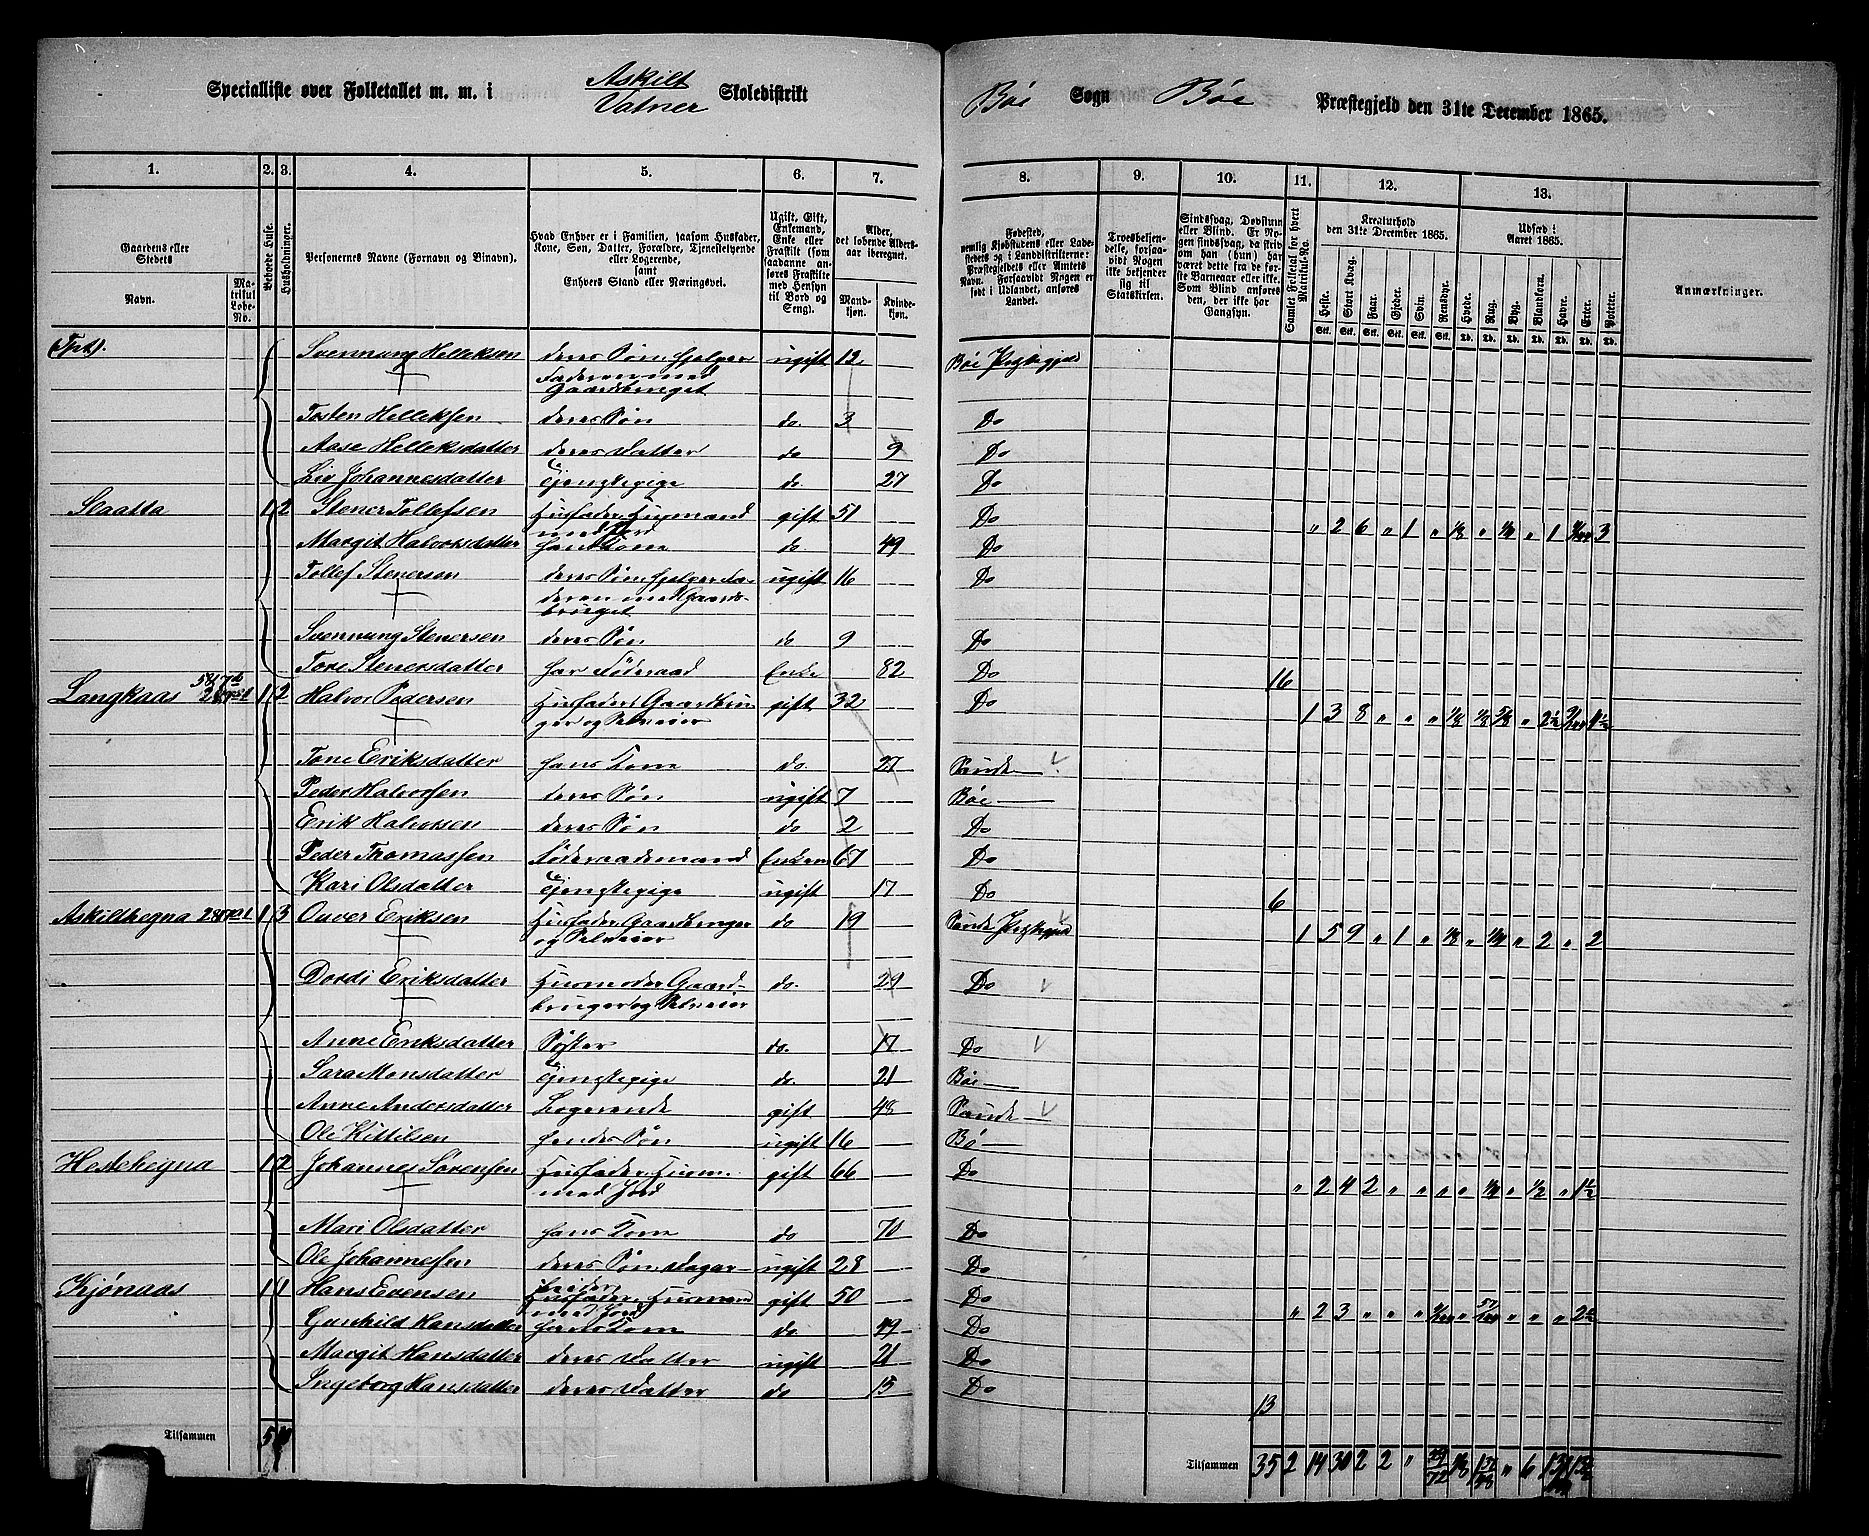 Specialliste over Folketallet m. m. i Askilt Vatner Skoledistrikt
Bøe Sogn Bøe Præstegjeld den 31te December 1865.
1. 2. 3. 4. 5. 6. 7. 8. 9. 10. 11. 12. 13.
Gaardens eller Stedets Navn. Matrikul Løbe-No.
Beboede Huse.
Husholdninger.
Personernes Navne (Fornavn og Binavn).
Hvad Enhver er i Familien, saasom Husfader, Kone, Søn, Datter, Forældre, Tjenestetyende eller Logerende, samt Enhvers Stand eller Næringsvei.
Ugift, Gift, Enkemand, Enke eller Fraskilt (som saadanne anføres Fraskilte med Hensyn til Bord og Seng).
Alder, det løbende Alders-aar iberegnet. Mandkjøn. Kvindekjøn.
Fødested, nemlig Kjøbstedens eller Ladestedets og i Landdistrikterne: Præstegjeldets eller Amtets Navn. Forsaavidt Nogen er født i Udlandet, anføres Landet.
Troesbekjendelse, forsaavidt Nogen ikke bekjender sig til Statskirken.
Sindssvag, Døvstum eller Blind. Er Nogen sindssvag, da skrives om han (hun) har været dette fra de første Barneaar eller ikke. Som Blind anføres den, der ikke har Gangsyn.
Samlet Folketal for hvert Matrikul-No.
Kreaturhold den 31te December 1865.
Heste. Stort Kvæg. Faar. Gjeder. Svin. Rensdyr.
Udsæd i Aaret 1865.
Hvede. Rug. Byg. Blandkorn. Havre. Erter. Poteter.
Anmærkninger.
Svennung Helleksen deres Søn, hjelper Faderen med Gaardsbruget ugift 12 Bøe Prstegjeld
Tosten Helleksen deres Søn do. 3 Do
Aase Helleksdatter deres Datter do 9 Do
Liv Johannesdatter Tjenstepige do. 27 Do
Slaatta 1 2 Stener Tollefsen Husfader, Husmand med Jord gift 51 Do
Margit Halvorsdatter hans Kone do 49 Do
Tollef Stenersen deres Søn, hjelper Faderen med Gaardsbruget ugift 16 Do
Svennung Stenersen deres Søn do 9 Do
Tone Stenersdatter har Føderaad Enke 82 Do 16
Langkaas 1 2 Halvor Pedersen Husfader, Gaardbruger og Selveier gift 32 Do
Tone Eriksdatter hans Kone do. 27 Sande
Peder Halvorsen deres Søn ugift 7 Bøe
Erik Halvorsen deres Søn do 2 Do
Peder Thomassen Føderaadsmand Enkem 67 Do
Kari Olsdatter Tjenstepige ugift 17 Do 6
Askilthegna 1 3 Onver Eriksen Husfader, Gaardbruger og Selveier do 19 Sande Prstegjeld
Dordi Eriksdatter Husmoder Gaardbruger og Selveier do. 29 Do
Anne Eriksdatter Søster do. 17 Do
Sara Monsdatter Tjenstepige do. 21 Bøe
Anne Andersdatter Logerende gift 48 Sande
Ole Kittilsen hendes Søn ugift 16 Bø
Hestehegna 1 2 Johannes Sørensen Husfader, Husm. med Jord gift 66 Do
Mari Olsdatter hans Kone do 70 Do
Ole Johannesen deres Søn Dagarbeider ugift 28 Do
Kjønaas 1 1 Hans Evensen Husfader, Husmand med Jord gift 50 Do
Gunhild Hansdatter hans Kone do. 49 Do
Margit Hansdatter deres Datter ugift 21 Do
Ingeborg Hansdatter deres Datter do 15 Do 13
Tilsammen 5
Tilsammen 35 2 14 30 2 2 "